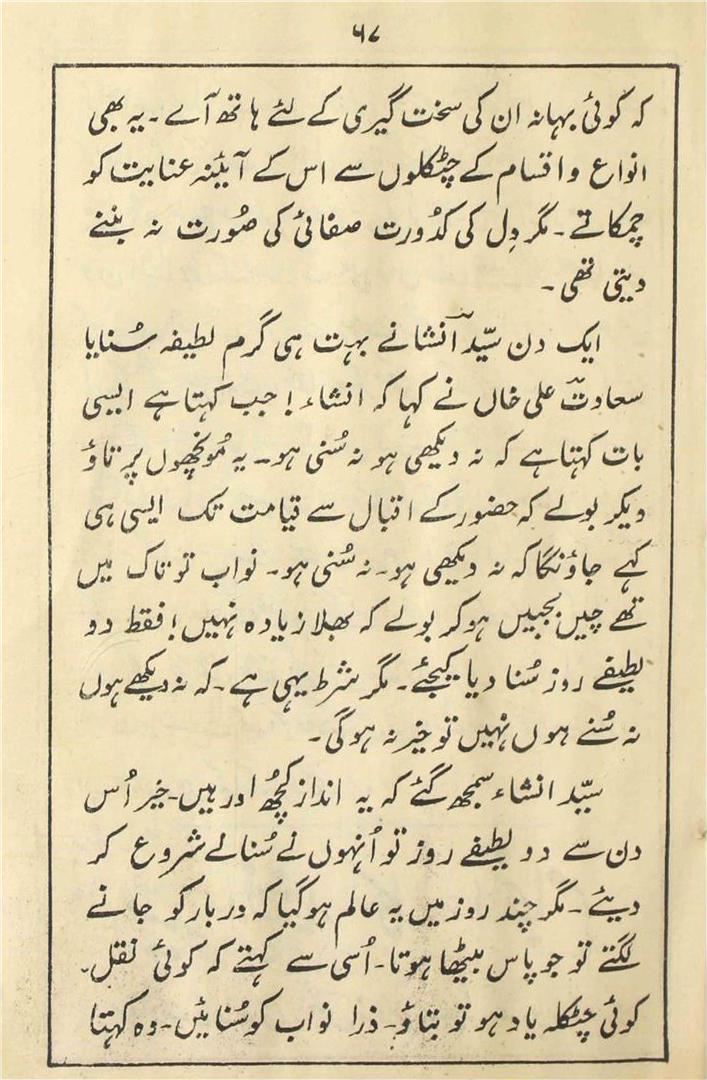 ۶۷
کہ کوئی بہانہ ان کی سخت گیری کے لئے ہاتھ آے ۔ یہ بھی
انواع و اقسام کے چٹکلوں سے اس کے آئینہ عنایت کو
چمکاتے ۔ مگر دِل کی کدُورت صفائی کی صُورت نہ بننے
دیتی تھی ۔
ایک دن سیّد انشا نے بہت ہی گرم لطیفہ سُنایا
سعادت علی خاں نے کہا کہ انشاء ! جب کہتا ہے ایسی
بات کہتا ہے کہ نہ دیکھی ہو نہ سُنی ہو ۔ یہ مُونچھوں پر تاؤ
دیکر بولے کہ حضور کے اقبال سے قیامت تک ایسی ہی
کہے جاؤنگا کہ نہ دیکھی ہو ۔ نہ سُنی ہو ۔ نواب تو تاک میں
تھے چیں بجبیں ہوکر بولے کہ بھلا زیادہ نہیں ! فقط دو
لطیفے روز سُنا دیا کیجئے ۔ مگر شرط یہی ہے ۔ کہ نہ دیکھے ہوں
نہ سُنے ہوں نہیں تو خیر نہ ہوگی ۔
سیّد انشاء سمجھ گئے کہ یہ انداز کچُھ اور ہیں ۔ خیر اُس
دن سے دو لطیفے روز تو اُنہوں نے سُنانے شروع کر
دیئے ۔ مگر چند روز میں یہ عالم ہوگیا کہ دربار کو جانے
لگتے تو جو پاس بیٹھا ہوتا ۔ اُسی سے کہتے کہ کوئی نقل ۔
کوئی چٹکلہ یاد ہو تو بتاؤ ۔ ذرا نواب کو سُنائیں ۔ وہ کہتا